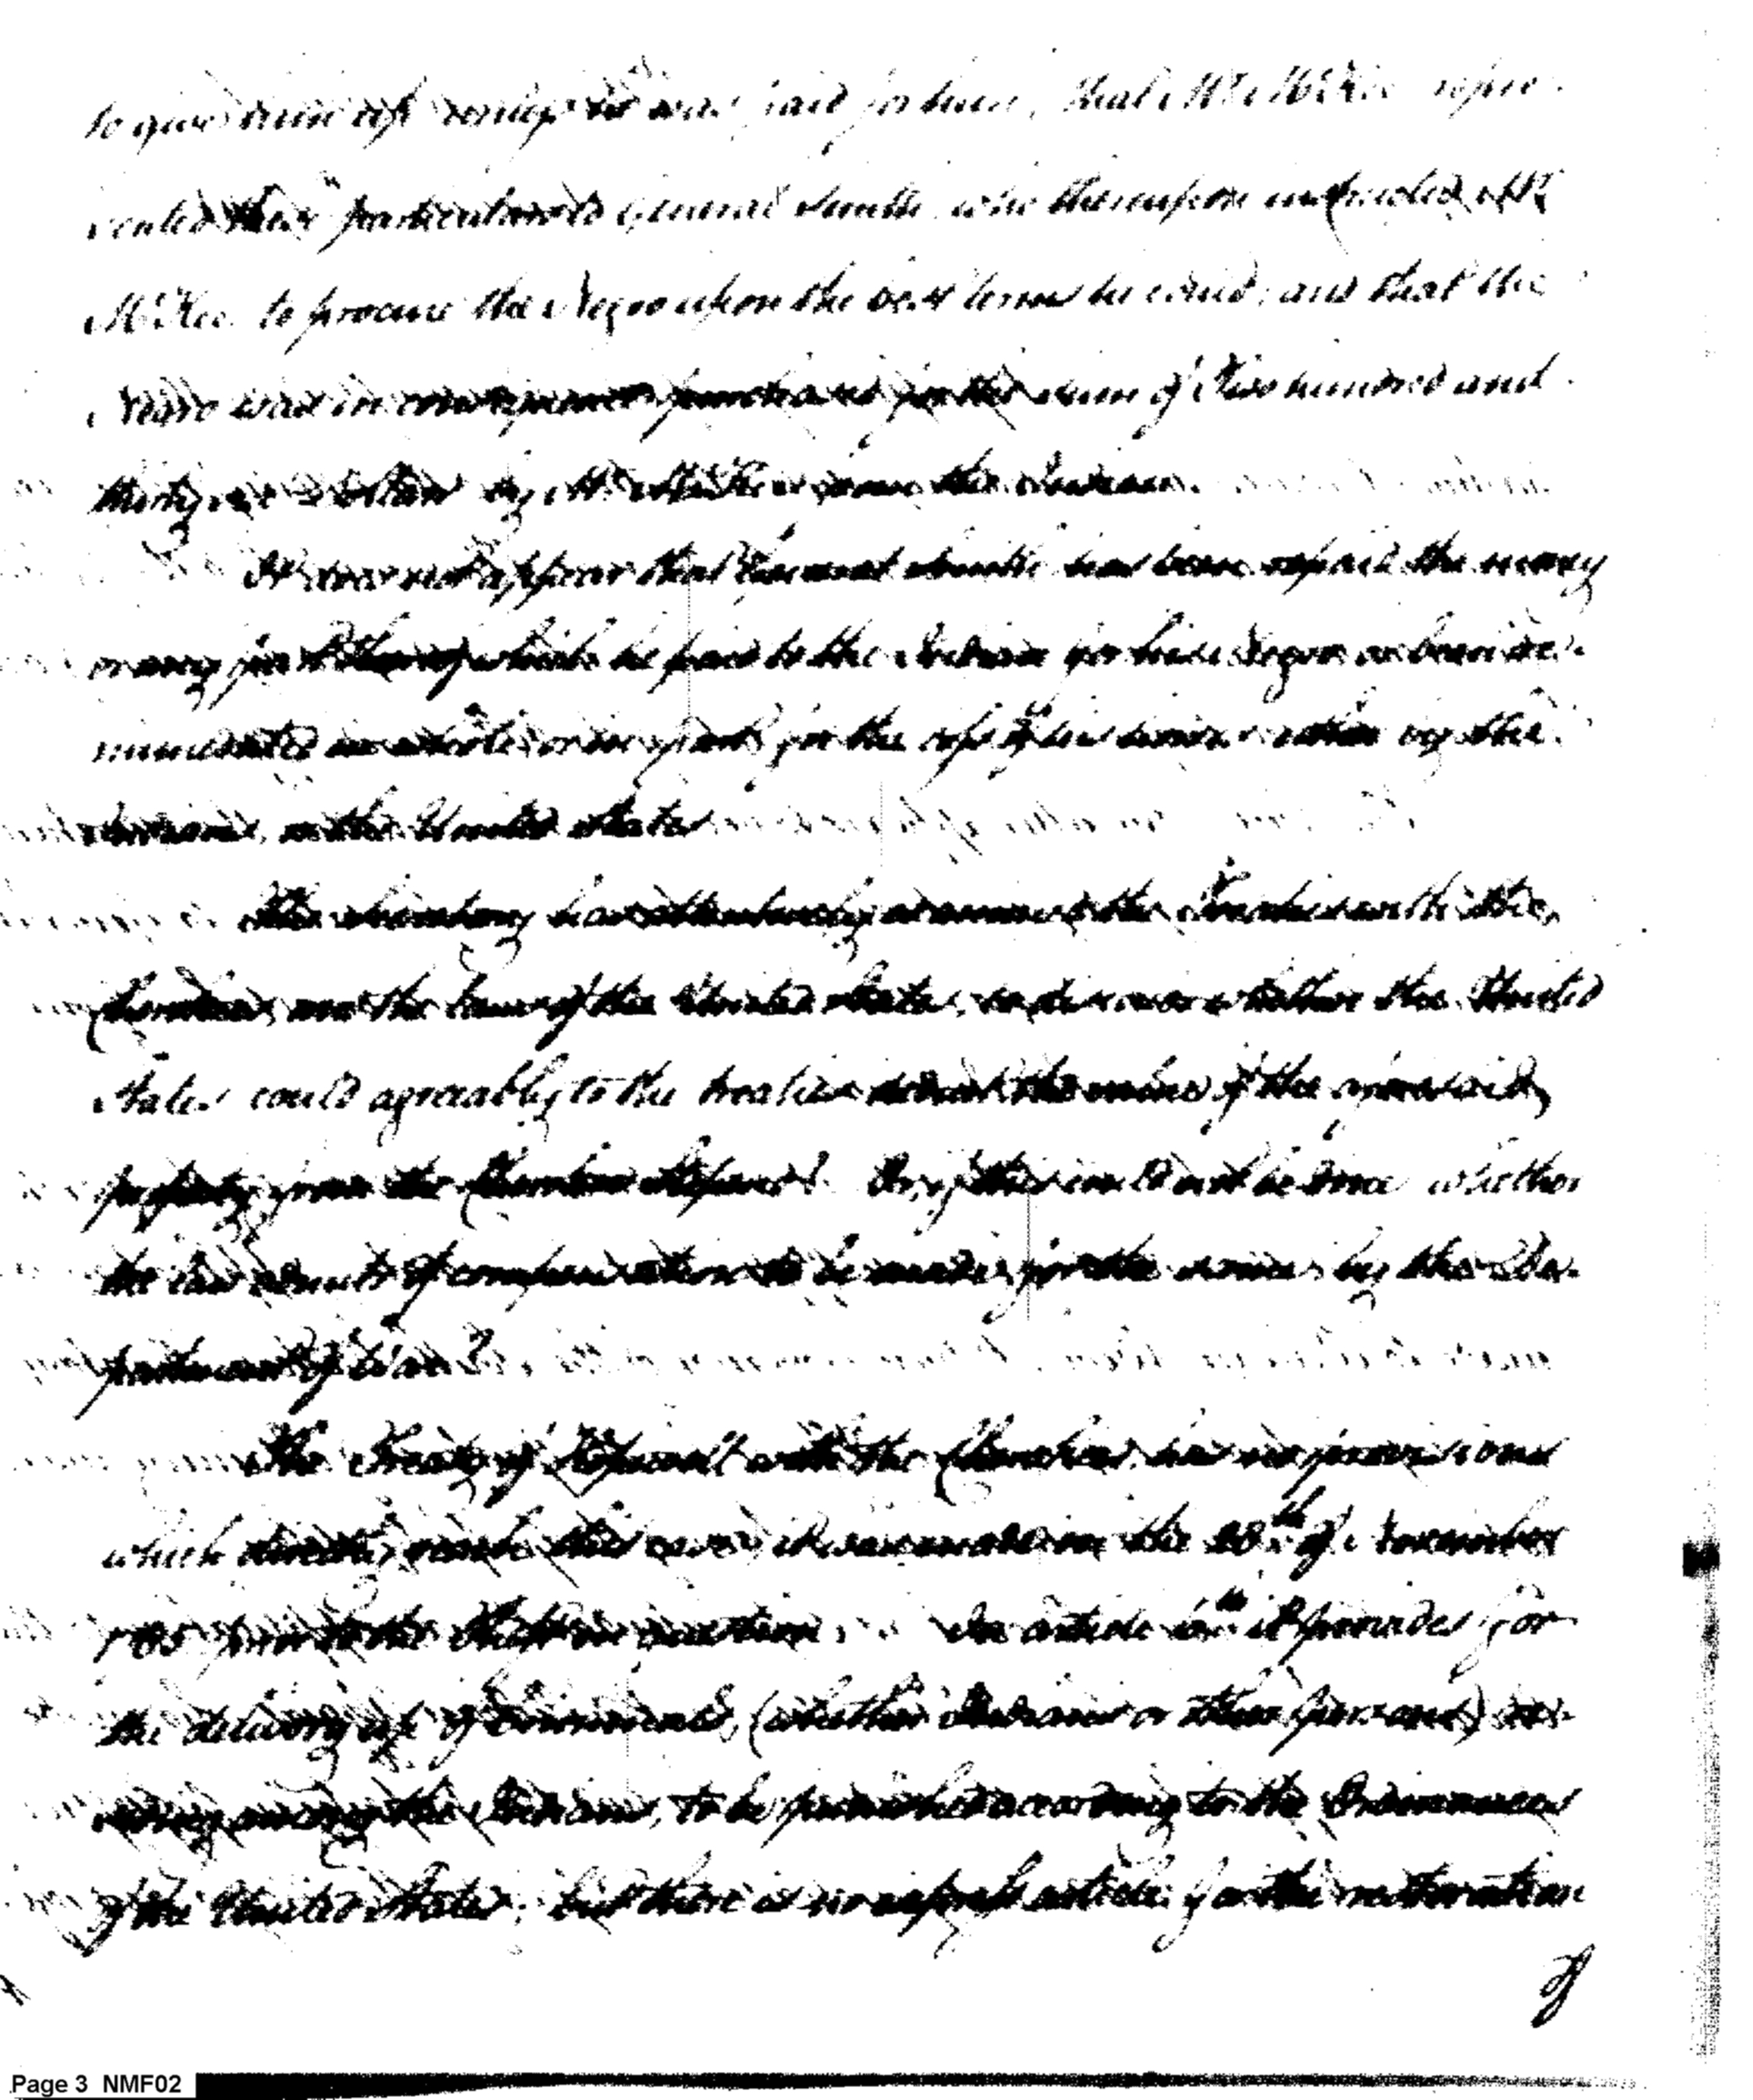 to give him up unless it was paid for him, that Mr. McKee repre-
sented these particulars to General Smith who thereupon instructed Mr.
McKee to procure the Negro upon the best terms he could; and that the
Negro was in consequence purchased for the sum of Two hundred and
thirty Dollars by Mr. McKee from the Indians.
It does not appear that General Smith has been repaid the money
or any part thereof which he paid to the Indians for his Negro or been re-
munerated in whole or in part for the loss of his horses stolen by the
Indians, or the United States
The Secretary has attentively examined the Treaties with the
Cherokees, and the laws of the United States, to discover whether the United
States could agreeably to the treaties deduct the value of the aforesaid
property from the Cherokee Stipend. Or, if this could not be done whether
the law admits of compensation to be made for the same by the De-
partment of War?
The Treaty of Hopewell with the Cherokees has no provisions
which directly reach this case; it was made on the 28th of November
1785 prior to the theft in question. In article 6th it provides for
the delivery up of Criminals, (whether Indians or other persons) re-
siding among the Indians, to be punished according to the Ordinances
of the United States; but there is no express article for the restoration
of
Page 3 NMF02